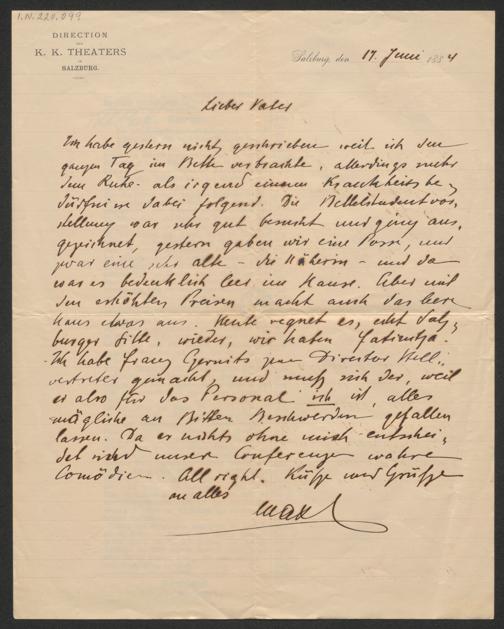 I.N. 220.099
DIRECTION
DES
K. K. THEATERS
IN
SALZBURG.
Salzburg, den 17. Juni 1884
Lieber Vater
Ich habe gestern nichts geschrieben weil ich den
ganzen Tag im Bette verbrachte, allerdings mehr
dem Ruhe- als irgend einem Krankheitsbe-
dürfnisse dabei folgend. Die Bettelstudentvor-
stellung war sehr gut besucht und ging aus-
gezeichnet, gestern gaben wir eine Posse, und
zwar eine sehr alte - die Näherin - und da
war es bedenklich leer im Hause. Aber mit
den erhöhten Preisen macht auch das leere
Haus etwas aus. Heute regnet es, echt Salz-
burger, wieder, wir haben
Ich habe Franz zum Director Stell-
vertreter gemacht, und muß sich der, weil
er also für das Personal ich ist, alles
mögliche an Bitten Beschwerden gefallen
lassen. Da er nichts ohne mich entschei-
det sind unsere Conferenzen wahre
Comödien. All right. Küsse und Grüße
an alles
Max